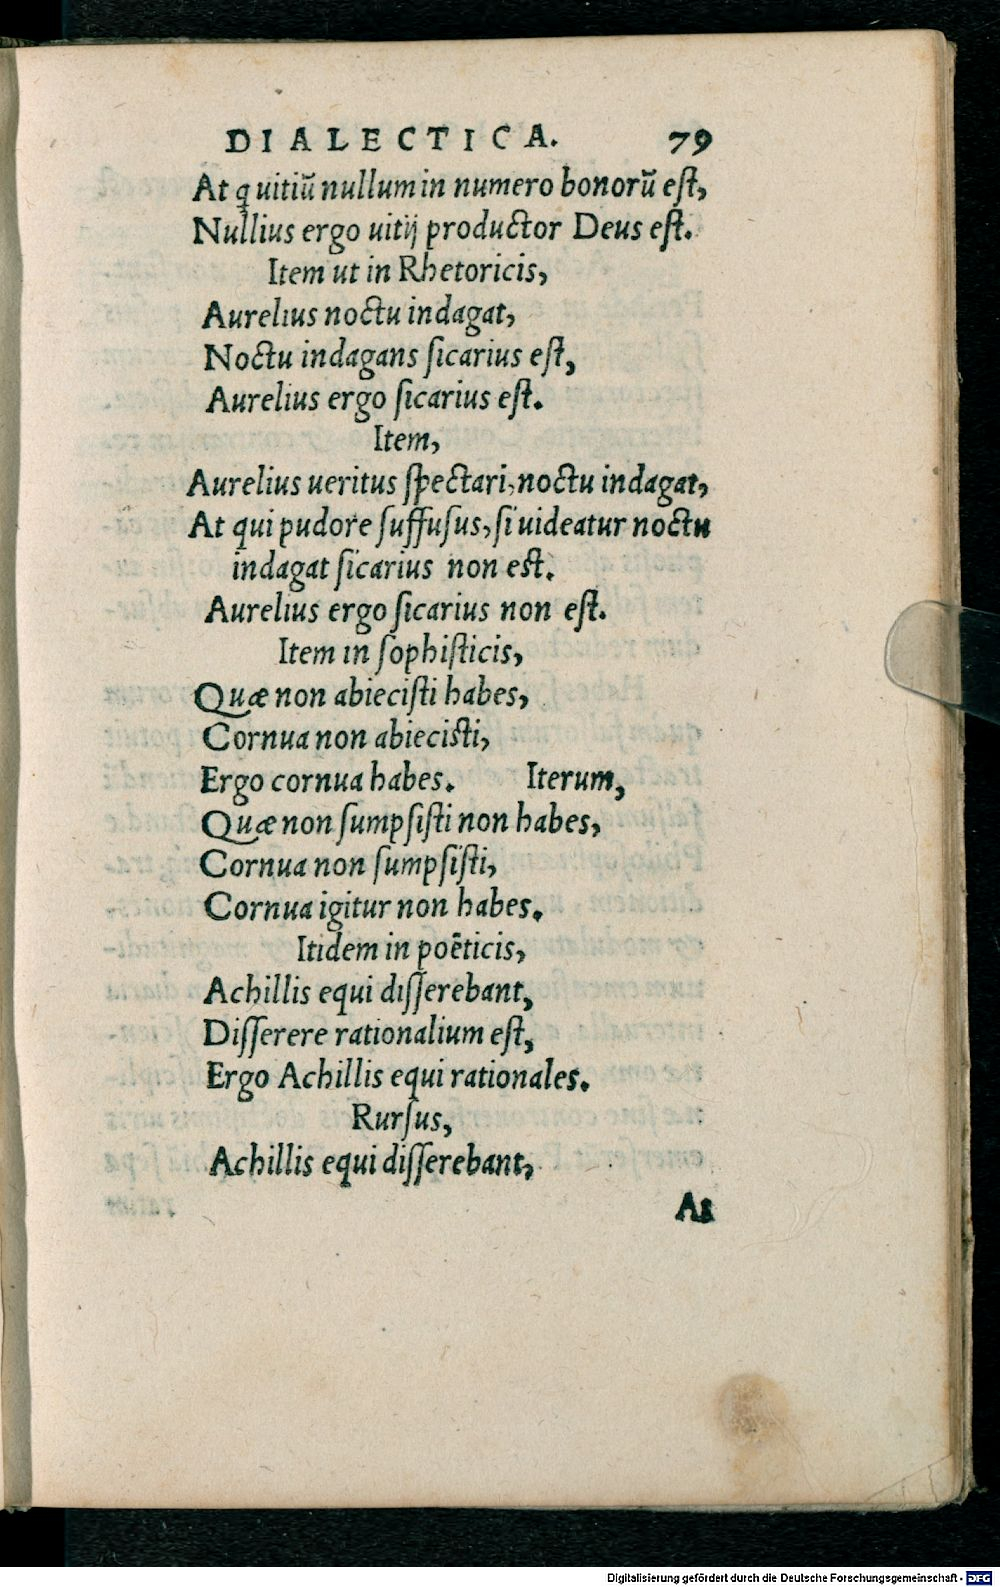 DIALECTICA. 79
At q uitiū nullum in numero bonorū est,
Nullius ergo uitij productor Deus est.
Item ut in Rhetoricis,
Aurelius noctu indagat,
Noctu indagans sicarius est,
Aurelius ergo sicarius est.
Item,
Aurelius ueritus spectari, noctu indagat,
At qui pudore suffusus, si uideatur noctu
indagat sicarius non est.
Aurelius ergo sicarius non est.
Item in sophisticis,
Quæ non abiecisti habes,
Cornua non abiecisti,
Ergo cornua habes. Iterum,
Quæ non sumpsisti non habes,
Cornua non sumpsisti,
Cornua igitur non habes.
Itidem in poëticis,
Achillis equi disserebant,
Disserere rationalium est,
Ergo Achillis equi rationales.
Rursus,
Achillis equi disserebant,
As
Digitalisierung gefördert durch die Deutsche Forschungsgemeinschaft - DFG